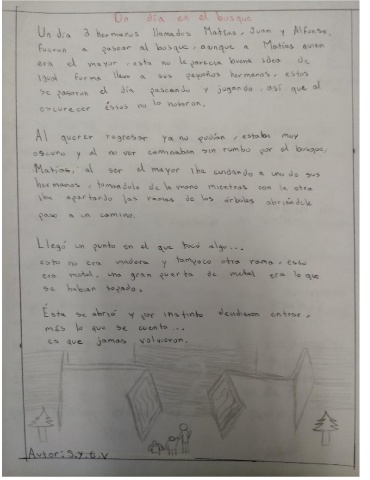 Un día en el bosque
Un día 3 hermanos llamados Matías, Juan y Alfonso,
fueron a pasear al bosque, aunque a Matías quien
era el mayor, esta no le parecía buena idea de
igual forma llevo a sus pequeños hermanos, estos
se pasaron el día paseando y jugando, así que al
oscurecer éstos no lo notaron.
Al querer regresar ya no podían, estaba muy
oscuro y al no ver caminaban sin rumbo por el bosque,
Matías, al ser el mayor iba cuidando a uno de sus
hermanos, tomandolo de la mano mientras con la otra
iba apartando las ramas de los árboles abriéndole
paso a un camino.
Llegó un punto en el que tocó algo...
esto no era madera y tampoco otra rama, esto
era metal, una gran puerta de metal era lo que
se habían topado.
Ésta se abrió y por instinto decidieron entrar,
más lo que se cuenta...
es que jamas volvieron.
Autor: S.Y.G.V